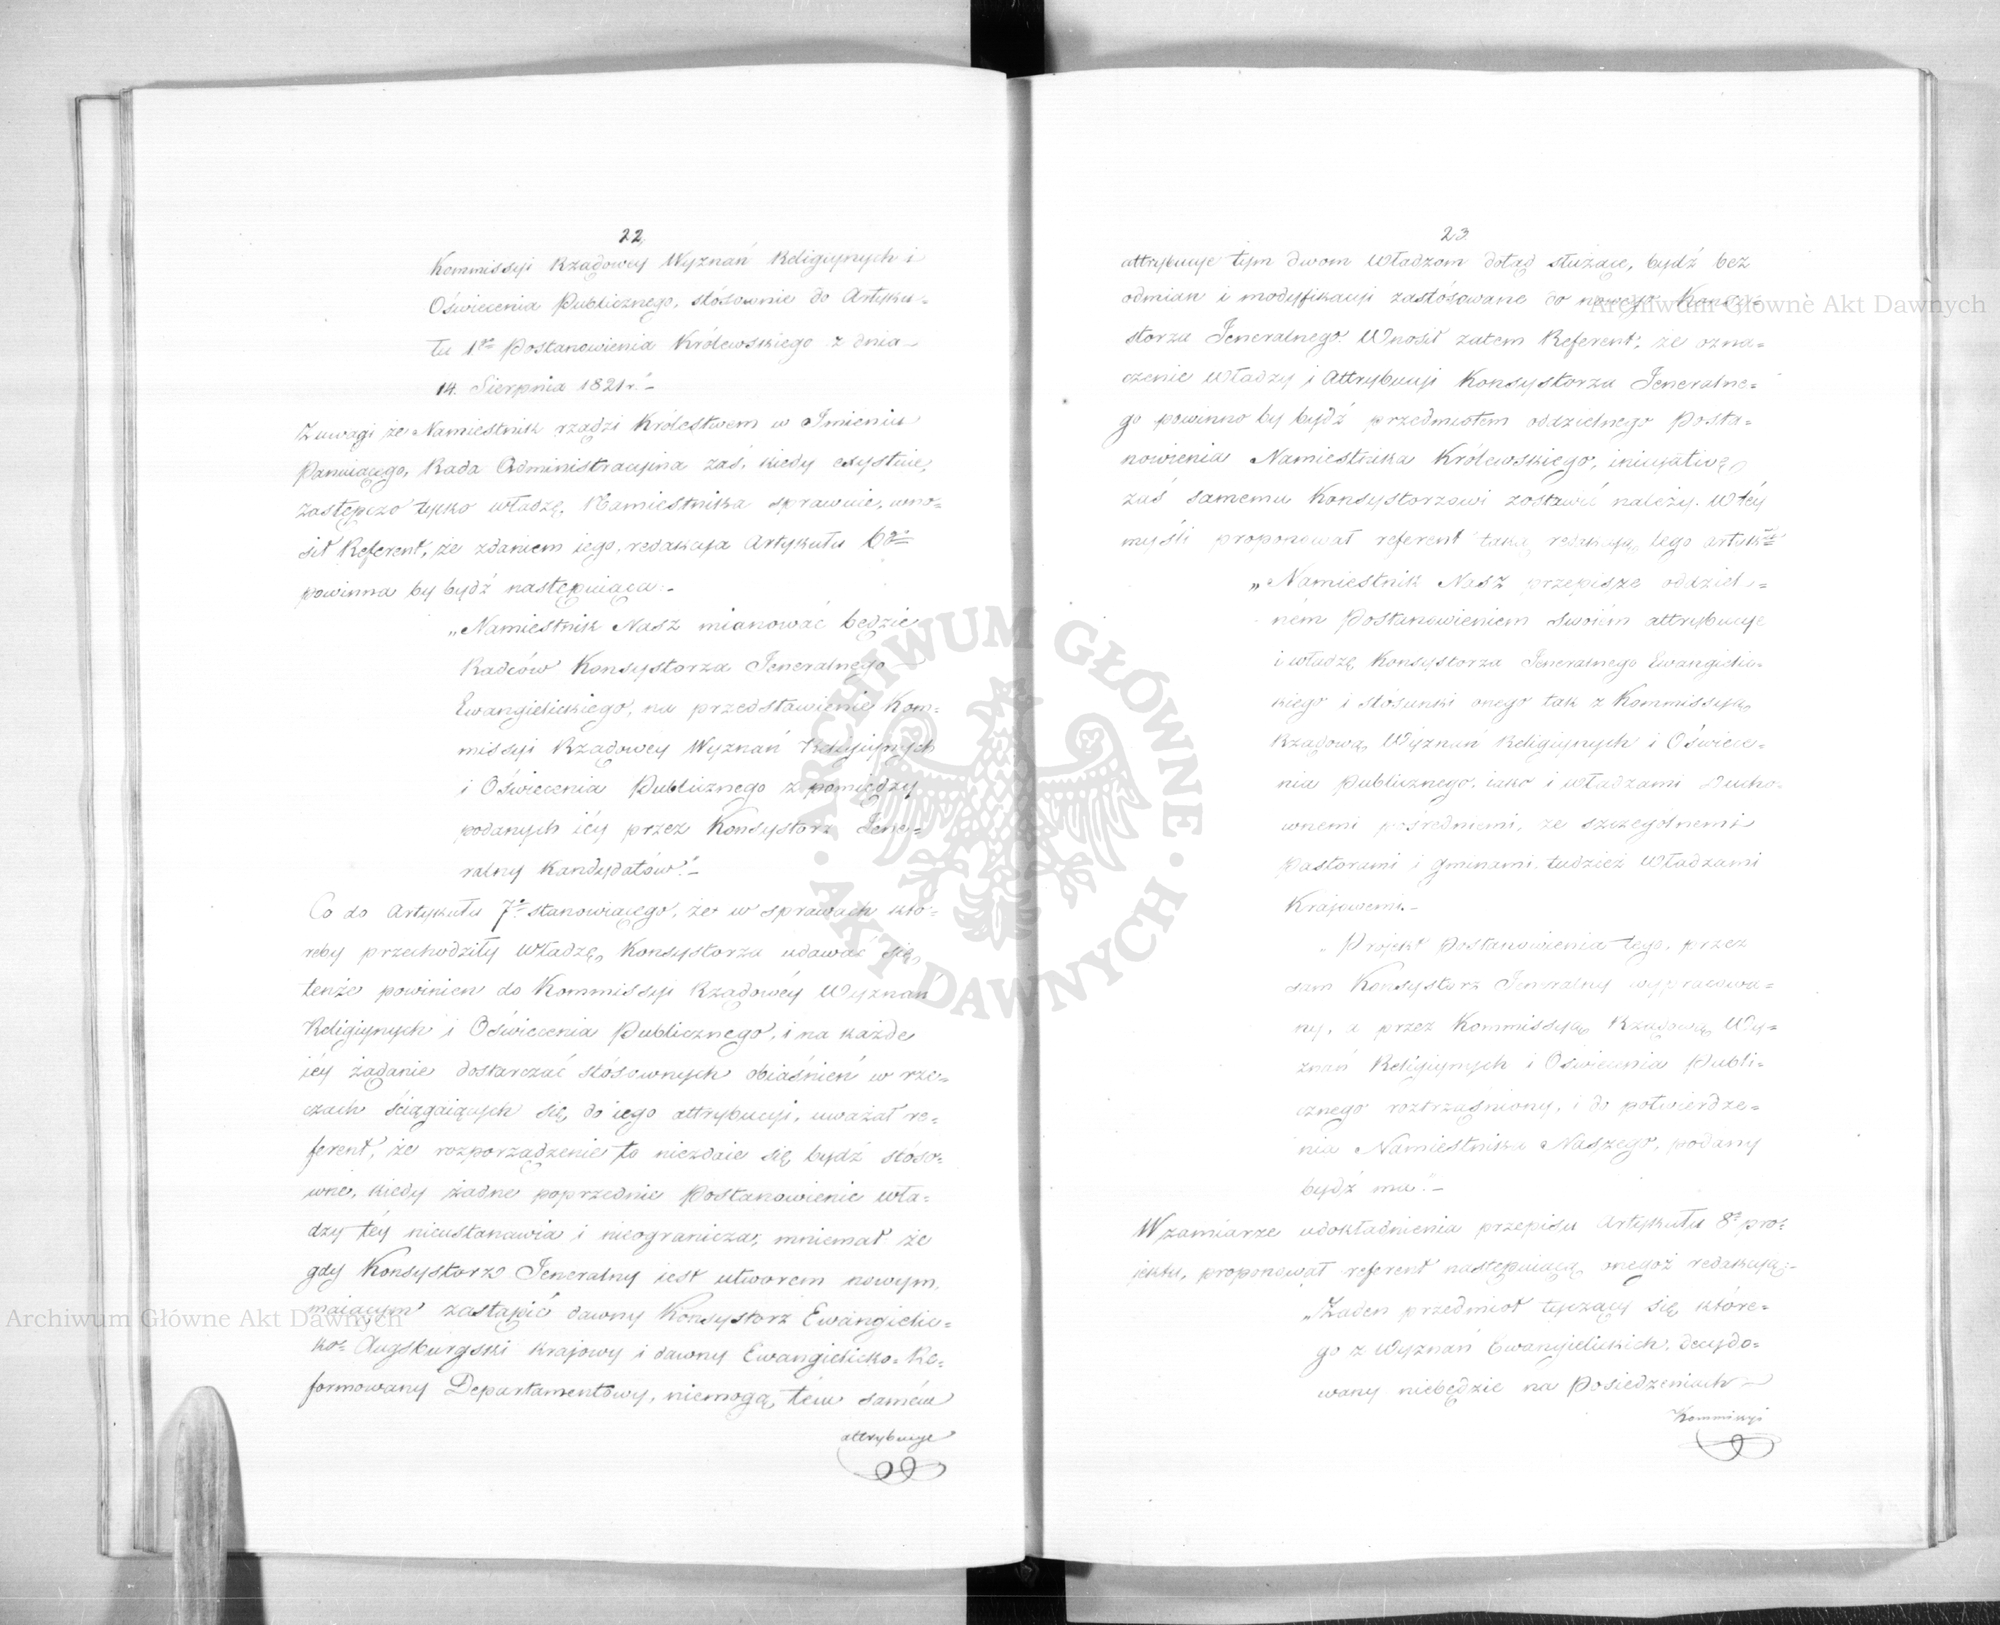 22.
Kommissyi Rządowey Wyznań Religiynych i
Oświecenia Publicznego, stósownie do Artyku-
łu 1go Postanowienia Królewskiego z dnia
14. Sierpnia 1821r."-
Z uwagi że Namiestnik rządzi Królestwem w Imieniu
Panuiącego, Rada Administracyina zaś, kiedy exystuie,
zastępczo tylko władzę Namiestnika sprawuie, wno-
sił Referent, że zdaniem iego, redakcya Artykułu 6go
powinna by bydź następuiąca:-
„Namiestnik Nasz mianować będzie
Radców Konsystorza Jeneralnego
Ewangielickiego, na przedstawienie Kom-
missyi Rządowey Wyznań Religiynych
i Oświecenia Publicznego z pomiędzy
podanych iéy przez Konsystorz Jene-
ralny Kandydatów."-
Co do Artykułu 7o stanowiącego, że w sprawach któ-
reby przechodziły Władzę Konsystorza udawać się
tenże powinien do Kommissyi Rządowéy Wyznań
Religiynych i Oświecenia Publicznego, i na każde
iéy żądanie dostarczać stósownych obiaśnień w rze-
czach ściągaiących się do iego attrybucyi, uważał re-
ferent, że rozporządzenie to niezdaie się bydź stóso-
wne, kiedy żadne poprzednie Postanowienie wła-
dzy téy nieustanawia i nieogranicza; mniemał że
gdy Konsystorz Jeneralny iest utworem nowym,
maiącym zastąpić dawny Konsystorz Ewangielic-
ko-Augsburgski Krajowy i dawny Ewangielicko-Re-
formowany Departamentowy, niemogą tém samém
attrybucye
23.
attrybucye tym dwom Władzom dotąd służące, bydź bez
odmian i modyfikacyi zastósowane do nowego Konsy-
storza Jeneralnego. Wnosił zatem Referent, że ozna-
czenie Władzy i Attrybucyi Konsystorza Jeneralne-
go powinno by bydź przedmiotem oddzielnego Posta-
nowienia Namiestnika Królewskiego, inicyatiwę
zaś samemu Konsystorzowi zostawić należy. W téy
myśli proponował referent taką redakcyą tego artykłu
„Namiestnik Nasz przepisze oddziel-
nem Postanowieniem swoiém attrybucye
i władzę Konsystorza Jeneralnego Ewangielic-
kiego i stósunki onego tak z Kommissyą
Rządową Wyznań Religiynych i Oświece-
nia Publicznego, iako i władzami Ducho-
wnemi pośredniemi, ze szczególnemi
Pastorami i gminami, tudzież Władzami
Krajowemi.-
„Projekt Postanowienia tego, przez
sam Konsystorz Jeneralny wypracowa-
ny, a przez Kommissyą Rządową Wy-
znań Religiynych i Oświecenia Publi-
cznego roztrząśniony, i do potwierdze-
nia Namiestnika Naszego, podany
bydź ma."-
W zamiarze udokładnienia przepisu Artykułu 8o pro-
jektu, proponował referent następuiącą onegoż redakcyą:-
„Żaden przedmiot tyczący się które-
go z Wyznań Ewangielickich, decydo-
wany niebędzie na Posiedzeniach
Kommissyi
Archiwum Główne Akt Dawnych
Archiwum Główne Akt Dawnych
ARCHIWUM GŁÓWNE
AKT DAWNYCH